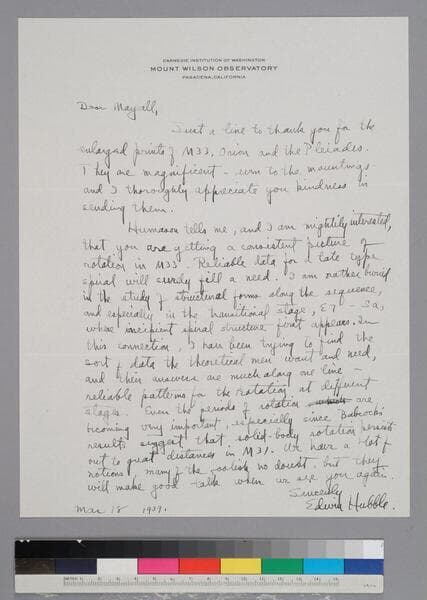 CARNEGIE INSTITUTION OF WASHINGTON
MOUNT WILSON OBSERVATORY
PASADENA, CALIFORNIA
Dear Mayall,
Just a line to thank you for the
enlarged prints of M33, Orion and the Pleiades.
They are magnificent - even to the mountings
and I thoroughly appreciate you kindness in
sending them.
Humason tells me, and I am mightily interested,
that you are getting a consistent picture of
rotation in M33. Reliable data for a late type
spiral will surely fill a need. I am rather buried
in the study of structural forms along the sequence,
and especially in the transitional stage, E7 - Sa,
where incipient spiral structure first appears. In
this connection, I have been trying to find the
sort of data the theoretical men want and need,
and their answers are much along one line -
reliable patterns for the rotation at different
stages. Even the periods of rotation are
becoming very important, especially since Babcock's
results suggest that solid-body rotation persist
out to great distances in M31. We have a lot of
notions, many of the foolish no doubt. but they
will make good talk when we see you again.
Sincerely
Edwin Hubble.
Mar 18 1939.